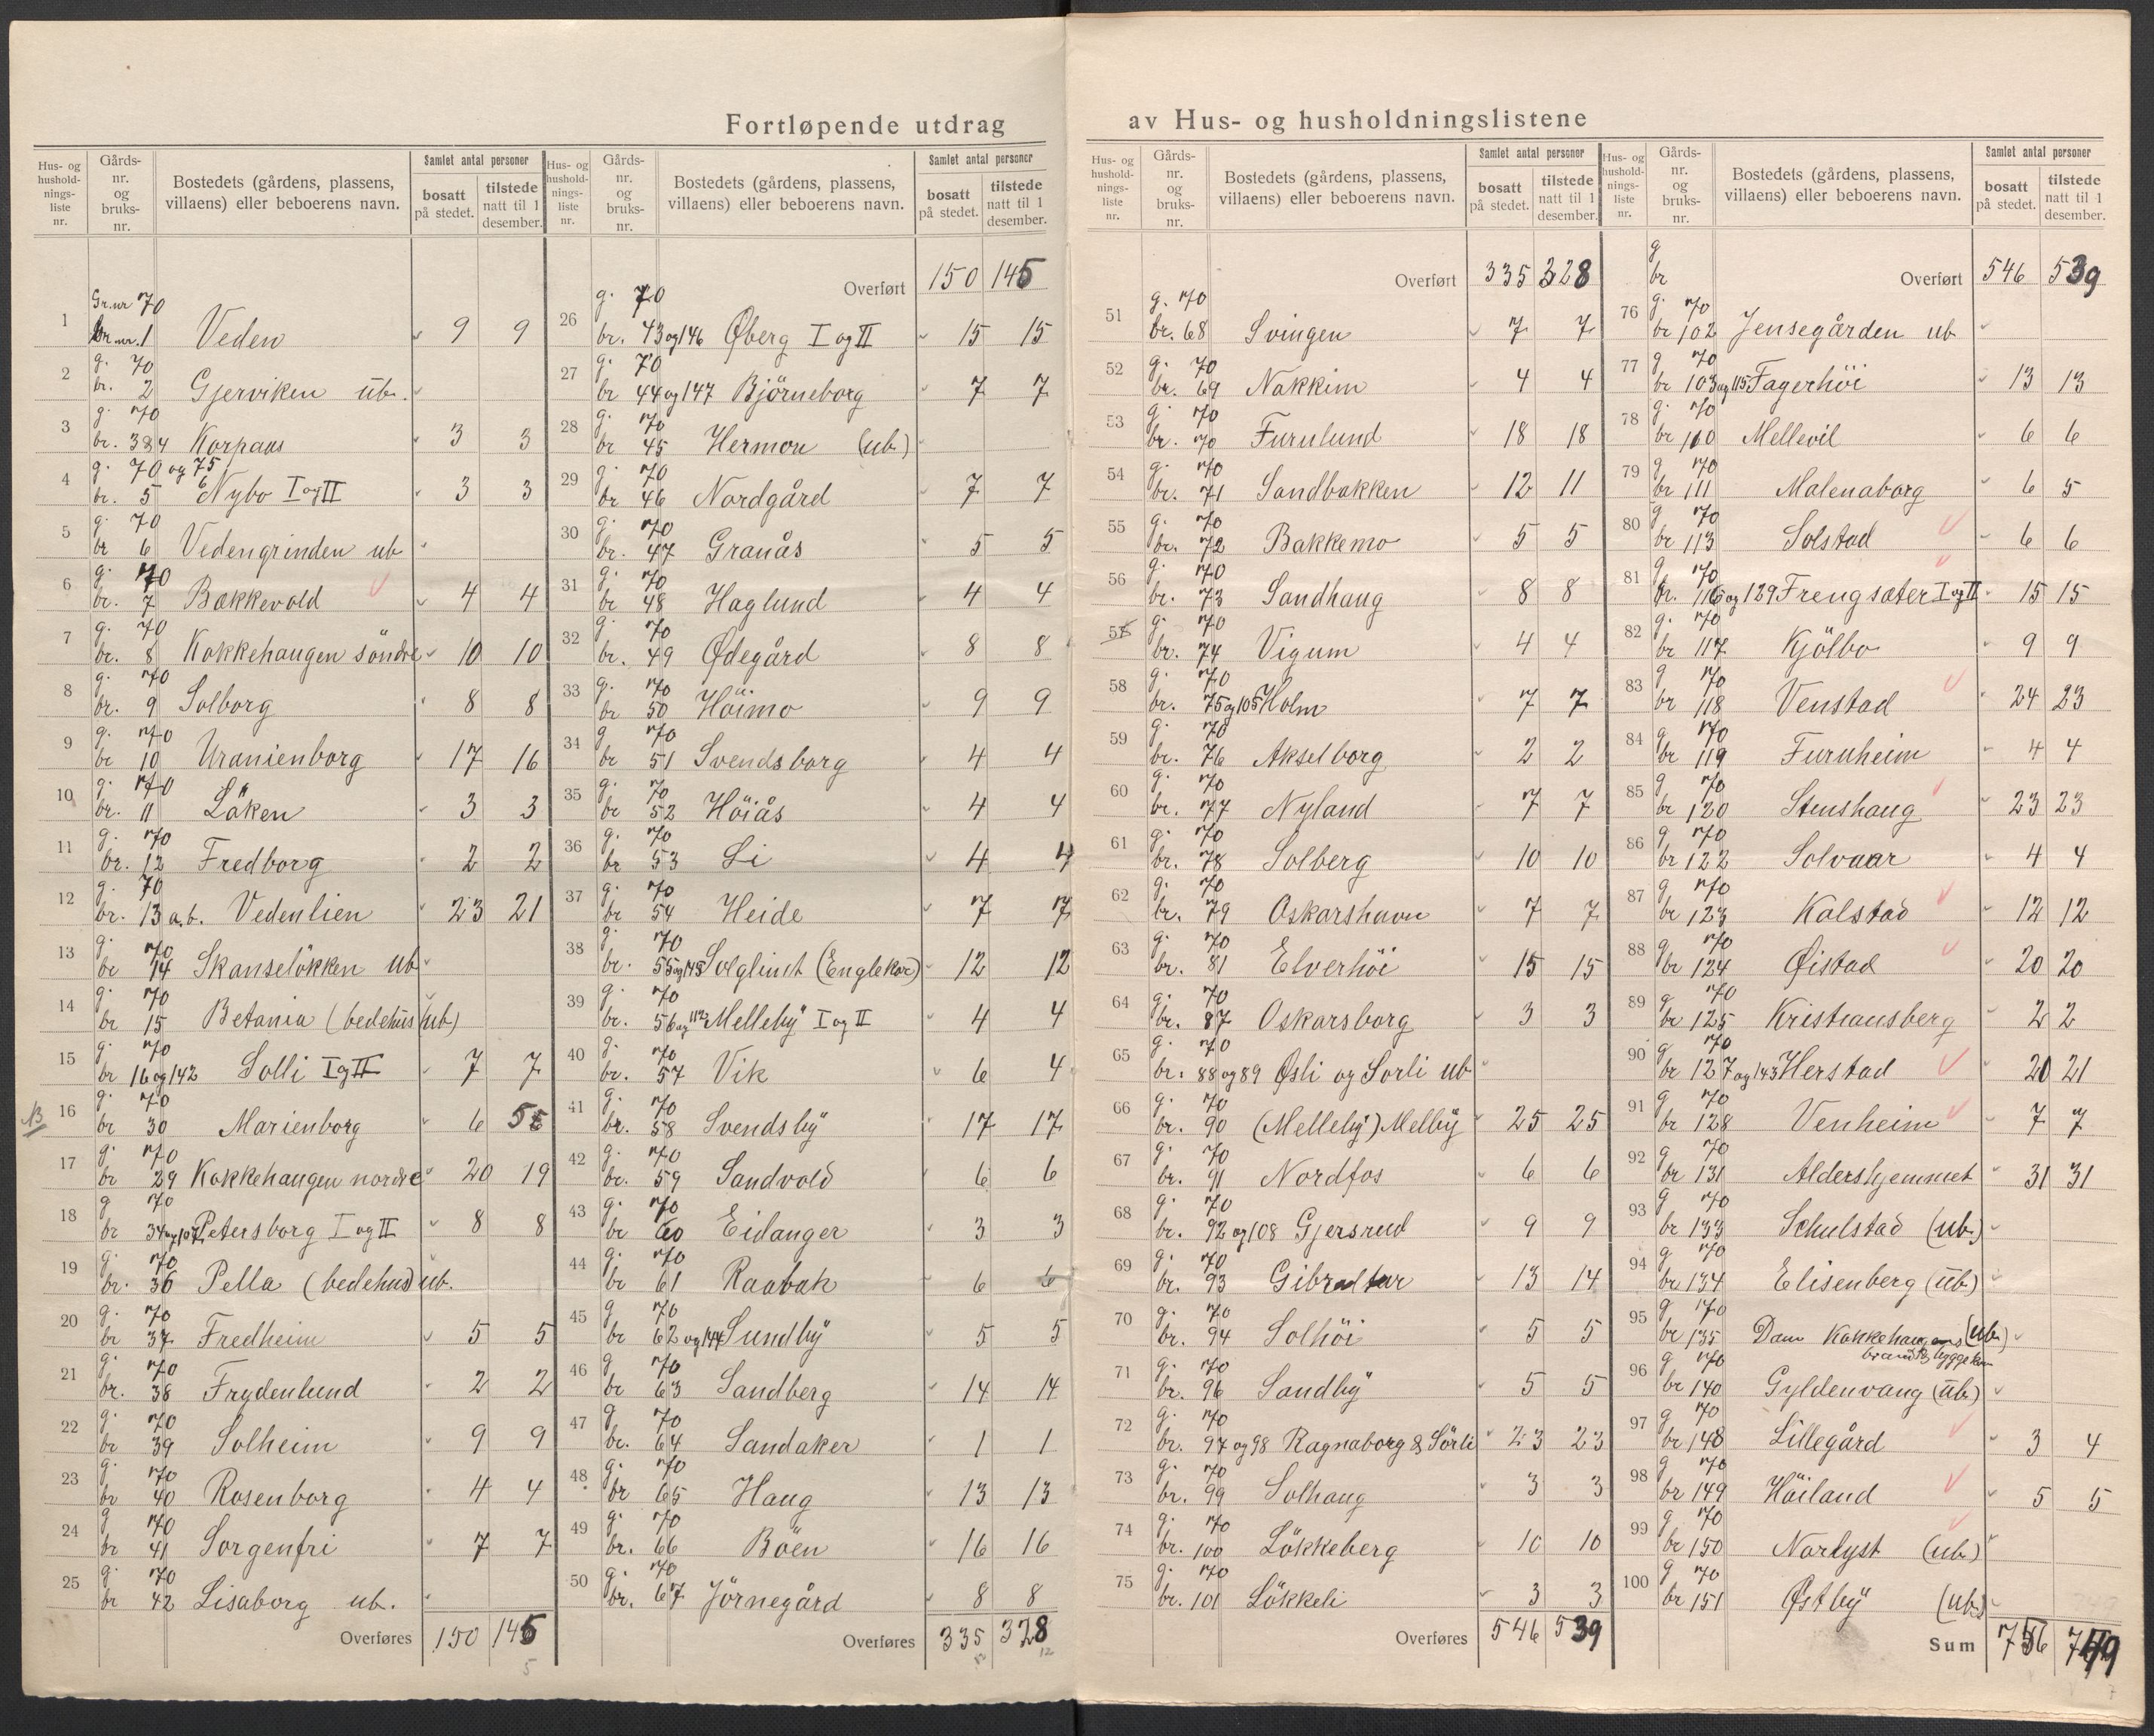 Fortløpende utdrag av Hus- og husholdningslistene
Hus- og hushold-nings-liste nr.
Gårds-nr. og bruks-nr.
Bostedets (gårdens, plassens, villaens) eller beboerens navn.
Samlet antal personer
bosatt på stedet.
tilstede natt til 1 desember.
1 Gr.nr 70 br.nr. 1 Veden 9 9
2 g. 70 br. 2 Gjerviken ub.
3 g. 70 br. 384 Korpaas 3 3
4 g. 70 og 75 br. 5 6 Nybo I og II 3 3
5 g. 70 br 6 Vedengrinden ub
6 g. 70 br. 7 Bakkevold 4 4
7 g. 70 br. 8 Kokkehaugen söndre 10 10
8 g. 70 br. 9 Solborg 8 8
9 g. 70 br 10 Uranienborg 17 16
10 g. 70 br. 11 Låken 3 3
11 g. 70 br. 12 Fredborg 2 2
12 g. 70 br. 13 a.b. Vedenlien 23 21
13 g. 70 br 14 Skanselökken ub
14 g. 70 br 15 Betania (bedehus) (ub)
15 g. 70 br 16 og 142 Solli I og II 7 7
13
16 g. 70 br 30 Marienborg 6 5
17 g. 70 br 29 Kokkehaugen nordre 20 19
18 g 70 br 34 og 107 Petersborg I og II 8 8
19 g. 70 br. 36 Pella (bedehus) ub.
20 g. 70 br 37 Fredheim 5 5
21 g. 70 br. 38 Frydenlund 2 2
22 g. 70 br 39 Solheim 9 9
23 g. 70 br 40 Rosenborg 4 4
24 g 70 br 41 Sorgenfri 7 7
25 g. 70 br 42 Lisaborg ub.
Overføres 150 145
5
Hus- og hushold-nings-liste nr.
Gårds-nr. og bruks-nr.
Bostedets (gårdens, plassens, villaens) eller beboerens navn.
Samlet antal personer
bosatt på stedet.
tilstede natt til 1 desember.
Overført 150 145
26 g. 70 br. 43 og 146 Øberg I og II 15 15
27 g. 70 br 44 og 147 Björneborg 7 7
28 g. 70 br 45 Hermon (ub)
29 g. 70 br 46 Nordgård 7 7
30 g. 70 br. 47 Granås 5 5
31 g. 70 br 48 Haglund 4 4
32 g. 70 br. 49 Ødegård 8 8
33 g. 70 br 50 Höimo 9 9
34 g 70 br 51 Svendsborg 4 4
35 g. 70 br 52 Höiås 4 4
36 g. 70 br 53 Li 4 4
37 g. 70 br 54 Heide 7 7
38 g. 70 br. 55 og 145 Solglimt (Englekor) 12 12
39 g. 70 br. 56 og 112 Melleby I og II 4 4
40 g. 70 br. 57 Vik 6 4
41 g. 70 br. 58 Svendsby 17 17
42 g. 70 br. 59 Sandvold 6 6
43 g. 70 br 60 Eidanger 3 3
44 g. 70 br 61 Raabak 6 6
45 g 70 br 62 og 144 Sundby 5 5
46 g 70 br 63 Sandberg 14 14
47 g 70 br. 64 Sandaker 1 1
48 g. 70 br 65 Haug 13 13
49 g. 70 br. 66 Böen 16 16
50 g. 70 br. 67 Jörnegård 8 8
Overføres 335 328
12
Hus- og hushold-nings-liste nr.
Gårds-nr. og bruks-nr.
Bostedets (gårdens, plassens, villaens) eller beboerens navn.
Samlet antal personer
bosatt på stedet.
tilstede natt til 1 desember.
Overført 335 328
51 g. 70 br. 68 Svingen 7 7
52 g. 70 br. 69 Nakkim 4 4
53 g. 70 br. 70 Furulund 18 18
54 g. 70 br. 71 Sandbakken 12 11
55 g. 70 br. 72 Bakkemo 5 5
56 g. 70 br. 73 Sandhaug 8 8
57 g. 70 br. 74 Vigum 4 4
58 g. 70 br. 75 og 105 Holm 7 7
59 g. 70 br. 76 Akselborg 2 2
60 g. 70 br. 77 Nyland 7 7
61 g. 70 br. 78 Solberg 10 10
62 g. 70 br. 79 Oskarshavn 7 7
63 g. 70 br. 81 Elverhöi 15 15
64 g. 70 br. 87 Oskarsborg 3 3
65 g. 70 br. 88 og 89 Øsli og Sorli ub
66 g. 70 br. 90 (Melleby) Melby 25 25
67 g. 70 br. 91 Nordfos 6 6
68 g. 70 br. 92 og 108 Gjersrud 9 9
69 g. 70 br. 93 Gibraltar 13 14
70 g. 70 br. 94 Solhöi 5 5
71 g. 70 br. 96 Sandby 5 5
72 g. 70 br. 97 og 98 Ragnaborg & Sörli 23 23
73 g. 70 br. 99 Solhaug 3 3
74 g. 70 br. 100 Lökkeberg 10 10
75 g. 70 br. 101 Lökkeli 3 3
Overføres 546 539
Hus- og hushold-nings-liste nr.
Gårds-nr. og bruks-nr.
Bostedets (gårdens, plassens, villaens) eller beboerens navn.
Samlet antal personer
bosatt på stedet.
tilstede natt til 1 desember.
g br Overført 546 539
76 g. 70 br 102 Jensegården ub
77 g 70 br 103 og 115 Fagerhöi 13 13
78 g. 70 br 110 Mellevil 6 6
79 g 70 br 111 Malenaborg 6 5
80 g 70 br 113 Solstad 6 6
81 g 70 br. 116 og 129 Frengsæter I og II 15 15
82 g. 70 br 117 Kjölbo 9 9
83 g 70 br 118 Venstad 24 23
84 g 70 br 119 Furuheim 4 4
85 g 70 br 120 Stenshaug 23 23
86 g 70 br 122 Solvaar 4 4
87 g 70 br 123 Kalstad 12 12
88 g 70 br 124 Øistad 20 20
89 g 70 br 125 Kristiansberg 2 2
90 g 70 br 127 og 143 Herstad 20 21
91 g 70 br 128 Venheim 7 7
92 g 70 br 131 Aldershjemmet 31 31
93 g 70 br 133 Schulstad (ub.)
94 g 70 br 134 Elisenberg (ub)
95 g 70 br 135 Dam Kokkehaugens (ub)
96 g 70 br 140 Gyldenvang (ub)
97 g 70 br 148 Lillegård 3 4
98 g 70 br 149 Höiland 5 5
99 g 70 br 150 Norlyst (ub)
100 g 70 br 151 Østby (ub)
Sum 756 749
7